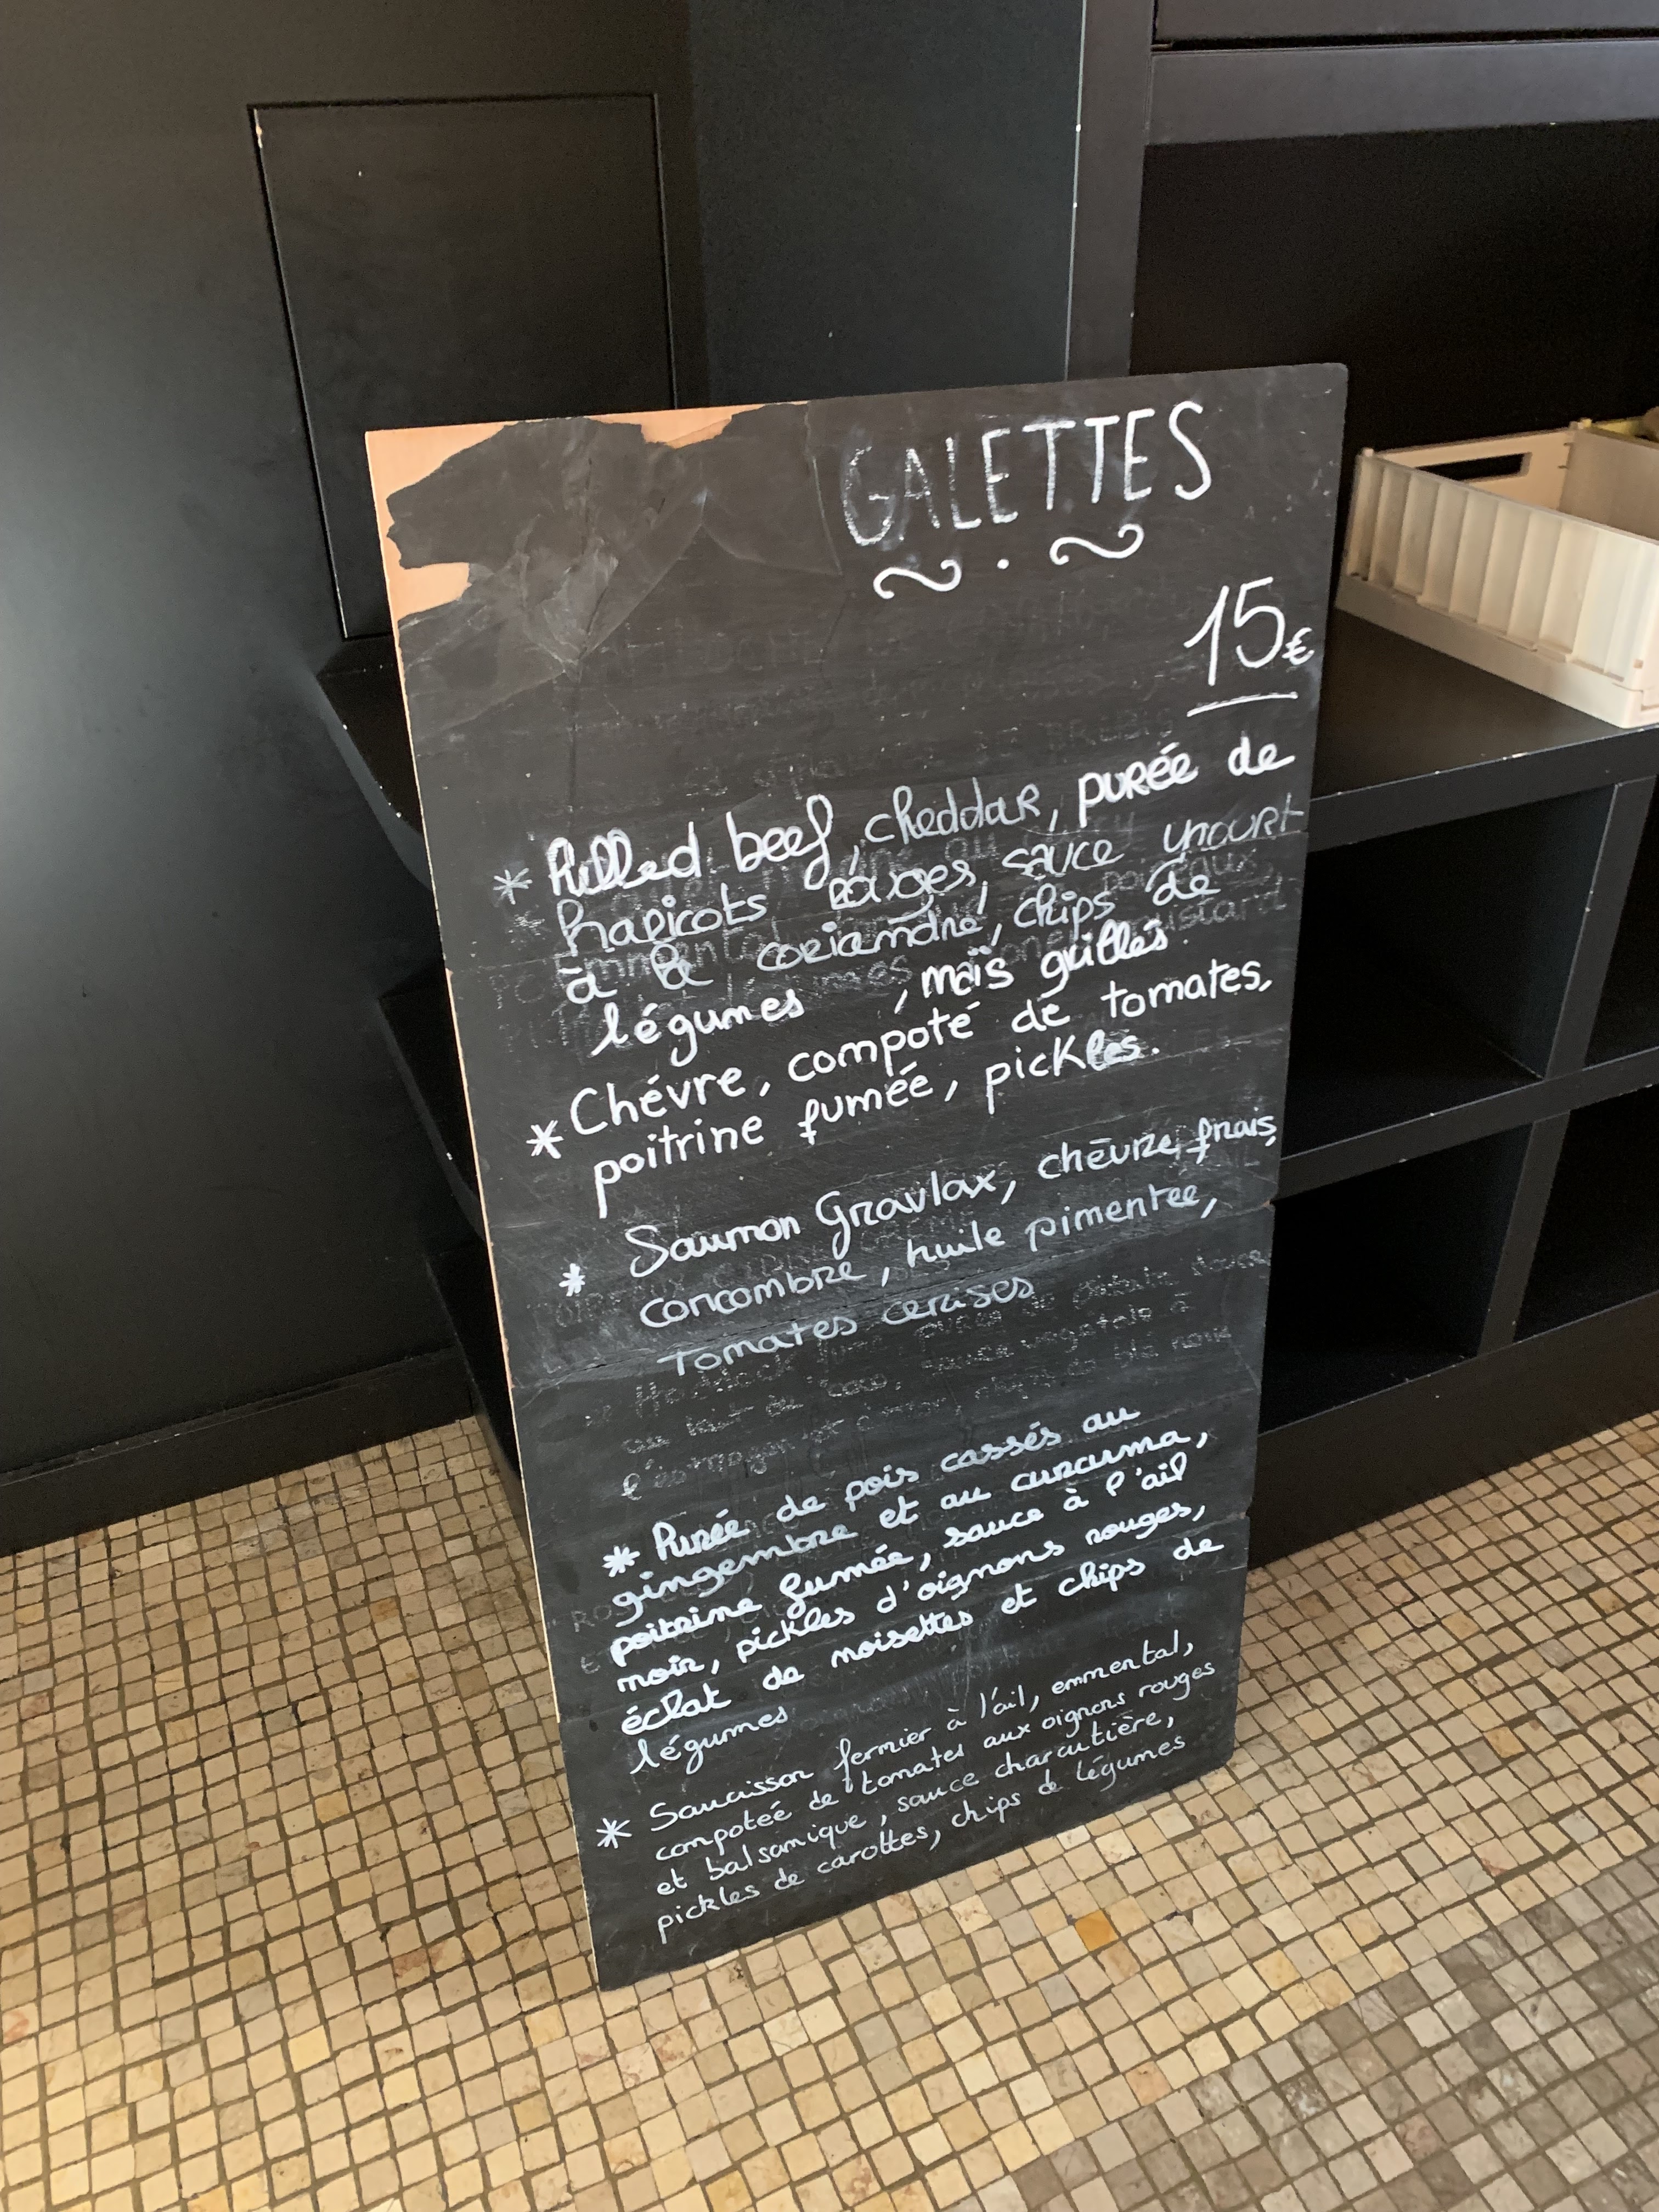 GALETTES
15€
* Pulled beef, cheddar, purée de
haricots rouges, sauce yaourt
à la coriandre, chips de
légumes , maïs grillés.
* Chévre, compoté de tomates,
poitrine fumée, pickles.
* Saumon Gravlax, chèvre frais,
concombre, huile pimentée,
Tomates cerises
* Purée de pois cassés au
gingembre et au curcuma,
poitrine fumée, sauce à l'ail
noir, pickles d'oignons rouges,
éclat de noisettes et chips de
légumes
* Saucisson fermier à l'ail, emmental,
compoteé de tomates aux oignons rouges
et balsamique, sauce charcutière,
pickles de carottes, chips de légumes